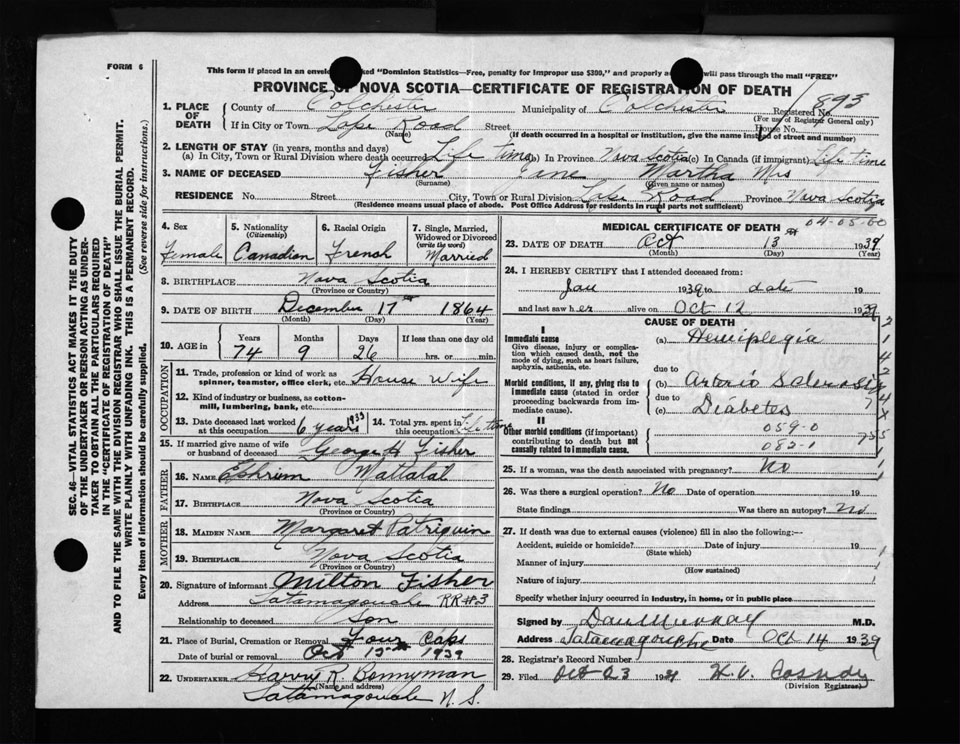 FORM 6
This form if placed in an envelo ked "Dominion Statistics—Free, penalty for improper use $300," and properly a will pass through the mail "FREE"
PROVINCE OF NOVA SCOTIA—CERTIFICATE OF REGISTRATION OF DEATH
1. PLACE OF DEATH
County of Colchester Municipality of Colchester Registered No. 893
(For use of Registrar General only)
If in City or Town Lake Road Street House No.
(Name) (If death occurred in a hospital or institution, give the name instead of street and number)
2. LENGTH OF STAY (in years, months and days)
(a) In City, Town or Rural Division where death occurred Life time (b) In Province Nova Scotia (c) In Canada (if immigrant) Life time
3. NAME OF DECEASED Fisher Jane Martha Mrs
(Surname) (Given name or names)
RESIDENCE No. Street City, Town or Rural Division Lake Road Province Nova Scotia
(Residence means usual place of abode. Post Office Address for residents in rural parts not sufficient)
4. Sex Female
5. Nationality (Citizenship) Canadian
6. Racial Origin French
7. Single, Married, Widowed or Divorced (write the word) Married
8. BIRTHPLACE Nova Scotia
(Province or Country)
9. DATE OF BIRTH December 17th 1864
(Month) (Day) (Year)
10. AGE in Years Months Days If less than one day
74 9 26 hrs. or min.
OCCUPATION
11. Trade, profession or kind of work as spinner, teamster, office clerk, etc. House Wife
12. Kind of industry or business, as cotton-mill, lumbering, bank, etc.
13. Date deceased last worked at this occupation 6 years 1933
14. Total yrs. spent in this occupation Life time
15. If married give name of wife or husband of deceased George H Fisher
FATHER
16. NAME Ephriem Mattatal
17. BIRTHPLACE Nova Scotia
(Province or Country)
MOTHER
18. MAIDEN NAME Margaret Patriquin
19. BIRTHPLACE Nova Scotia
(Province or Country)
20. Signature of informant Milton Fisher
Address Tatamagouche RR #3
Relationship to deceased Son
21. Place of Burial, Cremation or Removal Four Caps
Date of burial or removal Oct 15th 1939
22. UNDERTAKER Harry R. Bonnyman
(Name and address)
Tatamagouche N. S.
MEDICAL CERTIFICATE OF DEATH 04-05-00
23. DATE OF DEATH Oct 13 1939
(Month) (Day) (Year)
24. I HEREBY CERTIFY that I attended deceased from:
Jan 1939 to date 19
and last saw her alive on Oct 12 1939
CAUSE OF DEATH
I
Immediate cause
Give disease, injury or complication which caused death, not the mode of dying, such as heart failure, asphyxia, asthenia, etc.
(a) Hemiplegia
due to
Morbid conditions, if any, giving rise to immediate cause (stated in order proceeding backwards from immediate cause).
(b) Arterio Sclerosis
due to
(c) Diabetes
II
Other morbid conditions (if important) contributing to death but not causally related to immediate cause.
059-0
082-1
25. If a woman, was the death associated with pregnancy? No
26. Was there a surgical operation? No Date of operation 19
State findings Was there an autopsy? No
27. If death was due to external causes (violence) fill in also the following:—
Accident, suicide or homicide? Date of injury 19
(State which)
Manner of injury
(How sustained)
Nature of injury
Specify whether injury occurred in industry, in home, or in public place
Signed by Dan Murray M.D.
Address Tatamagouche Date Oct 14 1939
28. Registrar's Record Number
29. Filed Oct 23 19
(Division Registrar)
SEC. 46—VITAL STATISTICS ACT MAKES IT THE DUTY
OF THE UNDERTAKER OR PERSON ACTING AS UNDER-
TAKER TO OBTAIN ALL THE PARTICULARS REQUIRED
IN THE "CERTIFICATE OF REGISTRATION OF DEATH"
AND TO FILE THE SAME WITH THE DIVISION REGISTRAR WHO SHALL ISSUE THE BURIAL PERMIT.
WRITE PLAINLY WITH UNFADING INK. THIS IS A PERMANENT RECORD.
Every item of information should be carefully supplied. (See reverse side for instructions.)